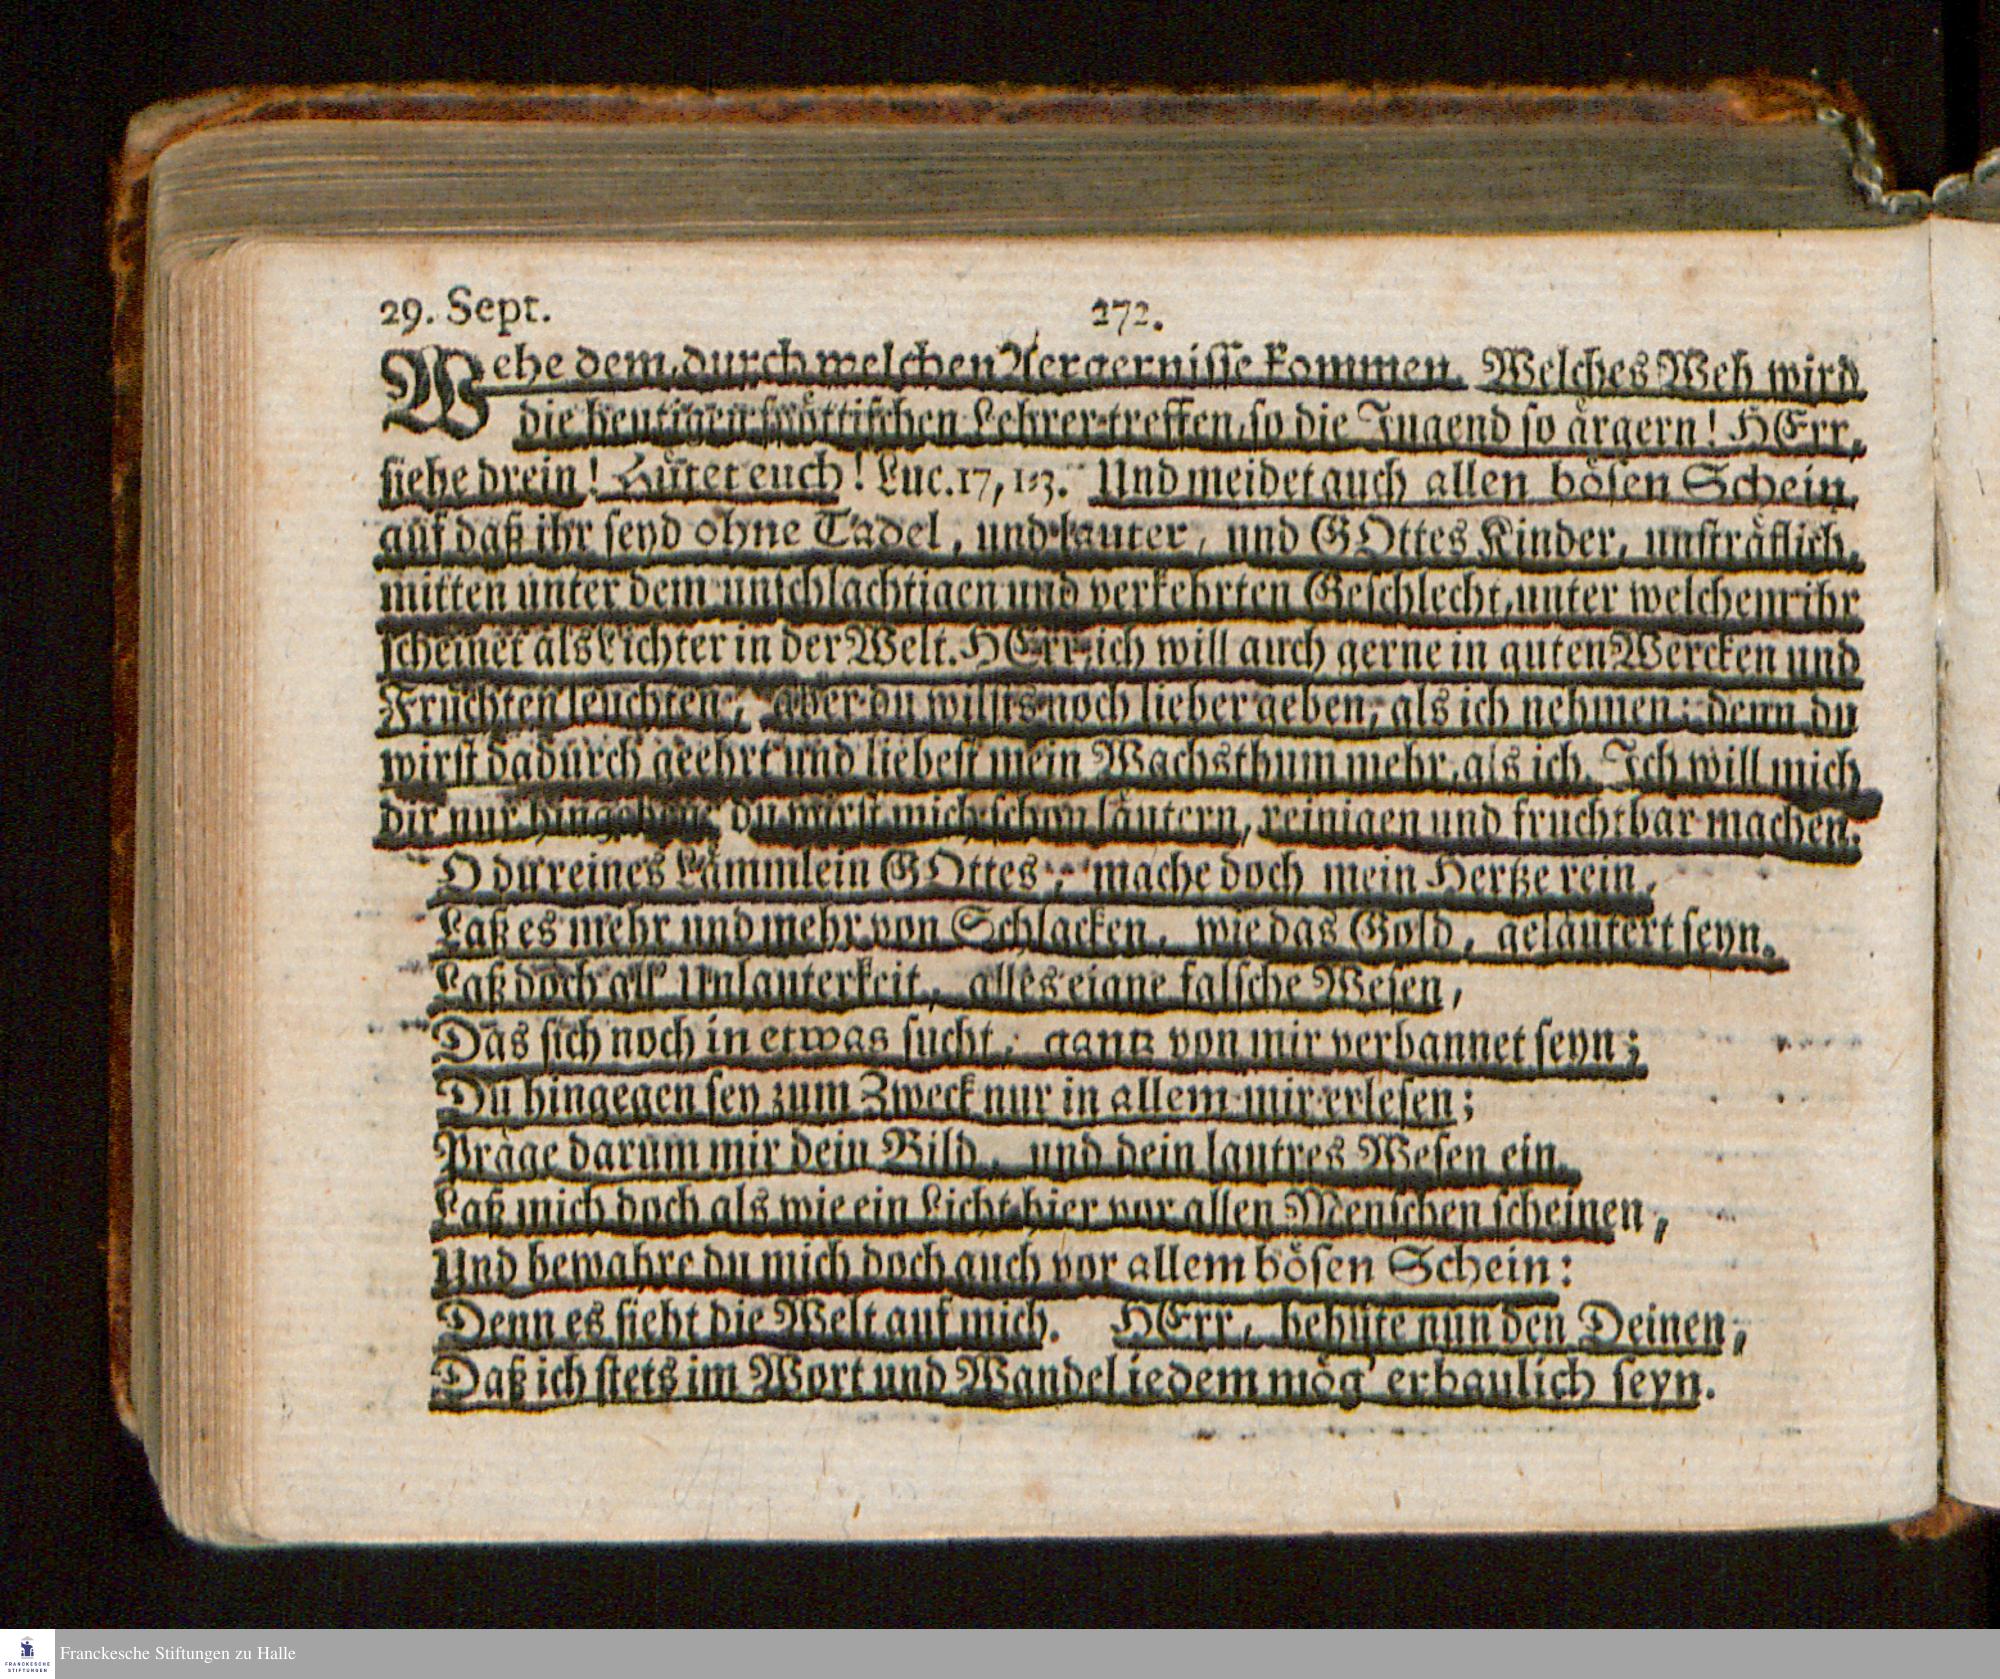 29. Sept. 272.
Wehe dem, durch welchen Aergernisse kommen. Welches Weh wird
die heutigen spöttischen Lehrer treffen, so die Jugend so ärgern! HErr,
siehe drein! Hütet euch! Luc. 17, 1-3. Und meidet auch allen bösen Schein,
auf daß ihr seyd ohne Tadel, und lauter, und GOttes Kinder, unsträflich,
mitten unter dem unschlachtigen und verkehrten Geschlecht, unter welchem ihr
scheinet als Lichter in der Welt. HErr, ich will auch gerne in guten Wercken und
Früchten leuchten; aber du wilsts noch lieber geben, als ich nehmen; denn du
wirst dadurch geehrt und liebest mein Wachsthum mehr, als ich. Ich will mich
dir nur hingeben; du wirst mich schon läutern, reinigen und fruchtbar machen.
O du reines Lämmlein GOttes, mache doch mein Hertze rein,
Laß es mehr und mehr von Schlacken, wie das Gold, geläutert seyn.
Laß doch all' Unlauterkeit, alles eigne falsche Wesen,
Das sich noch in etwas sucht, gantz von mir verbannet seyn;
Du hingegen sey zum Zweck nur in allem mir erlesen;
Präge darum mir dein Bild, und dein lautres Wesen ein.
Laß mich doch als wie ein Licht hier vor allen Menschen scheinen,
Und bewahre du mich doch auch vor allem bösen Schein:
Denn es sieht die Welt auf mich. HErr, behüte nun den Deinen,
Daß ich stets im Wort und Wandel iedem mög' erbaulich seyn.
FRANCKESCHE
STIFTUNGEN
Franckesche Stiftungen zu Halle